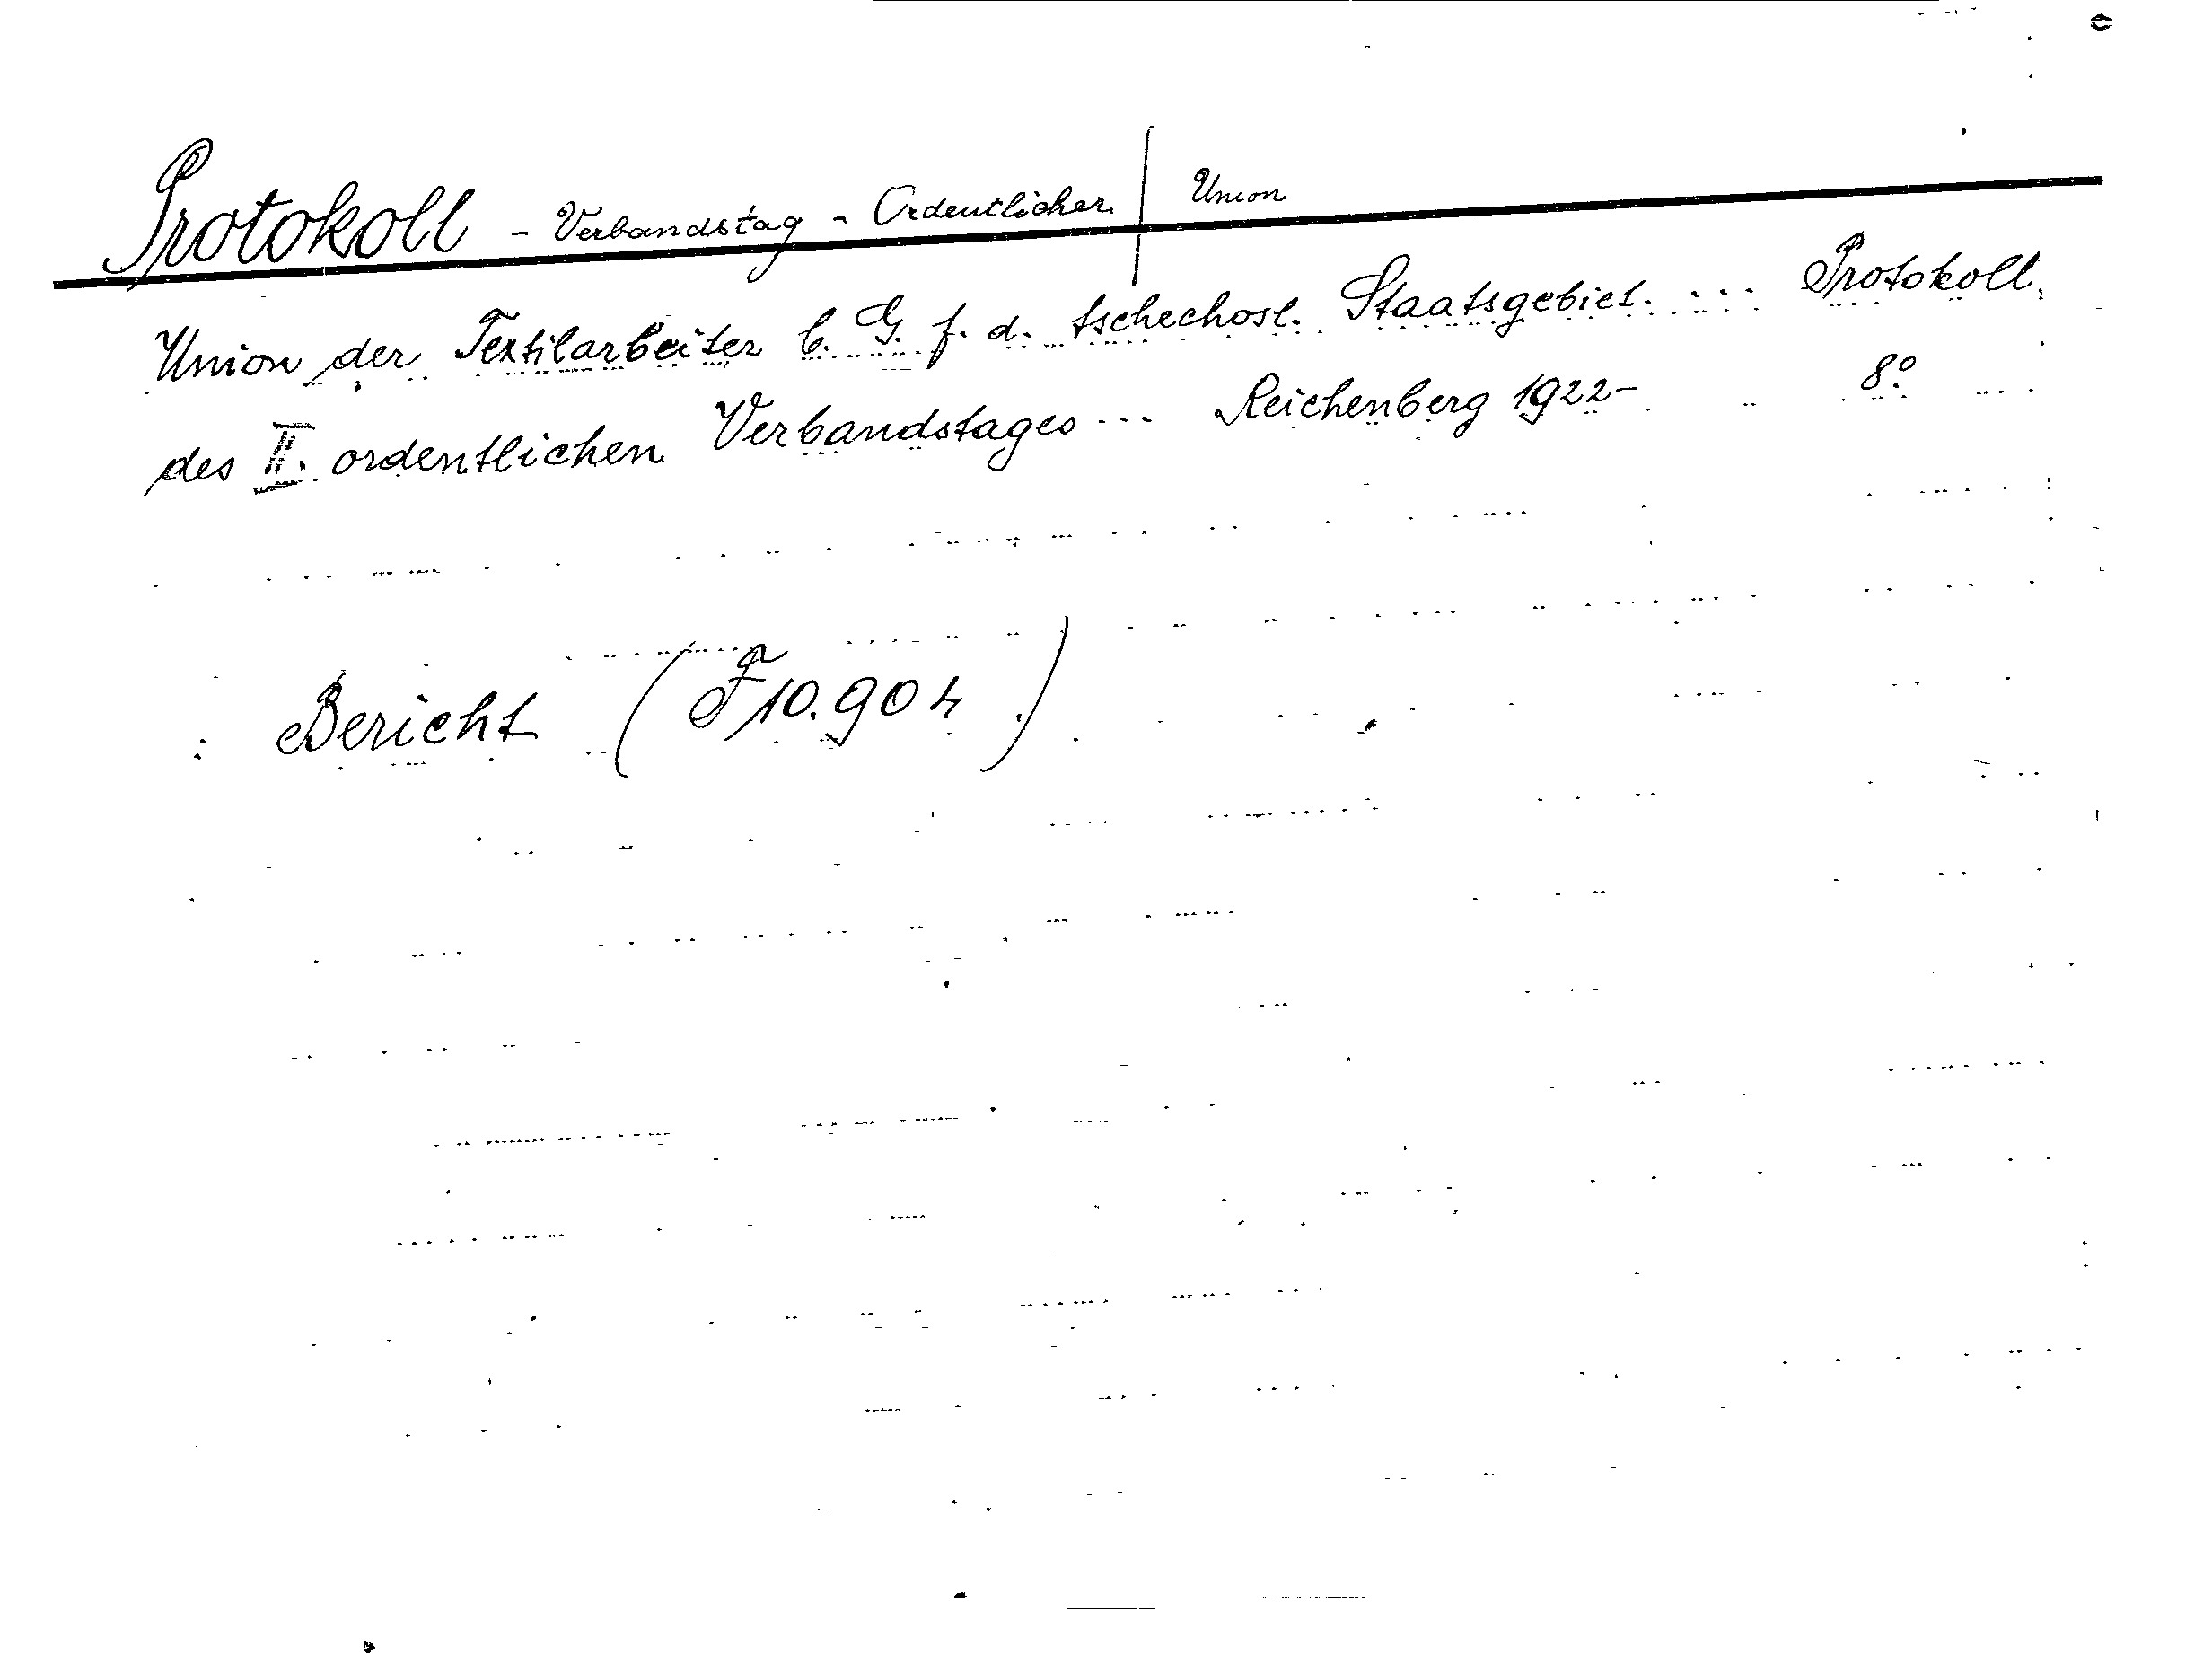 Protokoll - Verbandstag - Ordentlicher | Union
Union der Textilarbeiter b. G. f. d. tschechosl. Staatsgebiet. ... Protokoll
des II. ordentlichen Verbandstages ... Reichenberg 1922- 8°
Bericht (F 10.904)